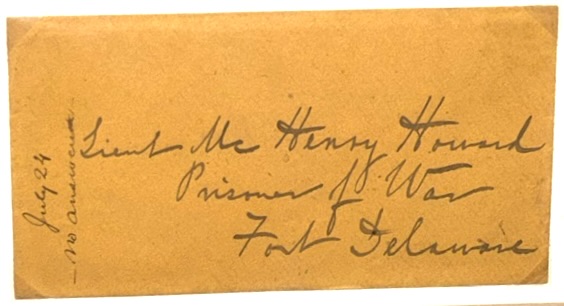 Lieut Mc Henry Howard
Prisoner of War
Fort Delaware
July 24
answered